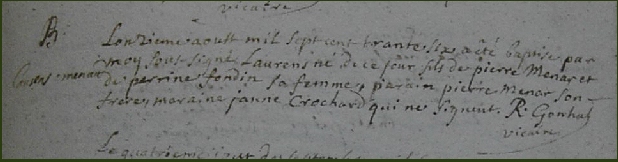 vicaire
B: Lonzieme aoust mil sept cent trante six a été baptise par
moy sous signé Laurens né de ce jour fils de pierre Menar et
Laurens menar
de perrine fondin sa femme, parain pierre Menar son
frere, maraine janne Crochard qui ne signent. R: Gonhal
vicaire
Le quatrieme jour de septembre mil